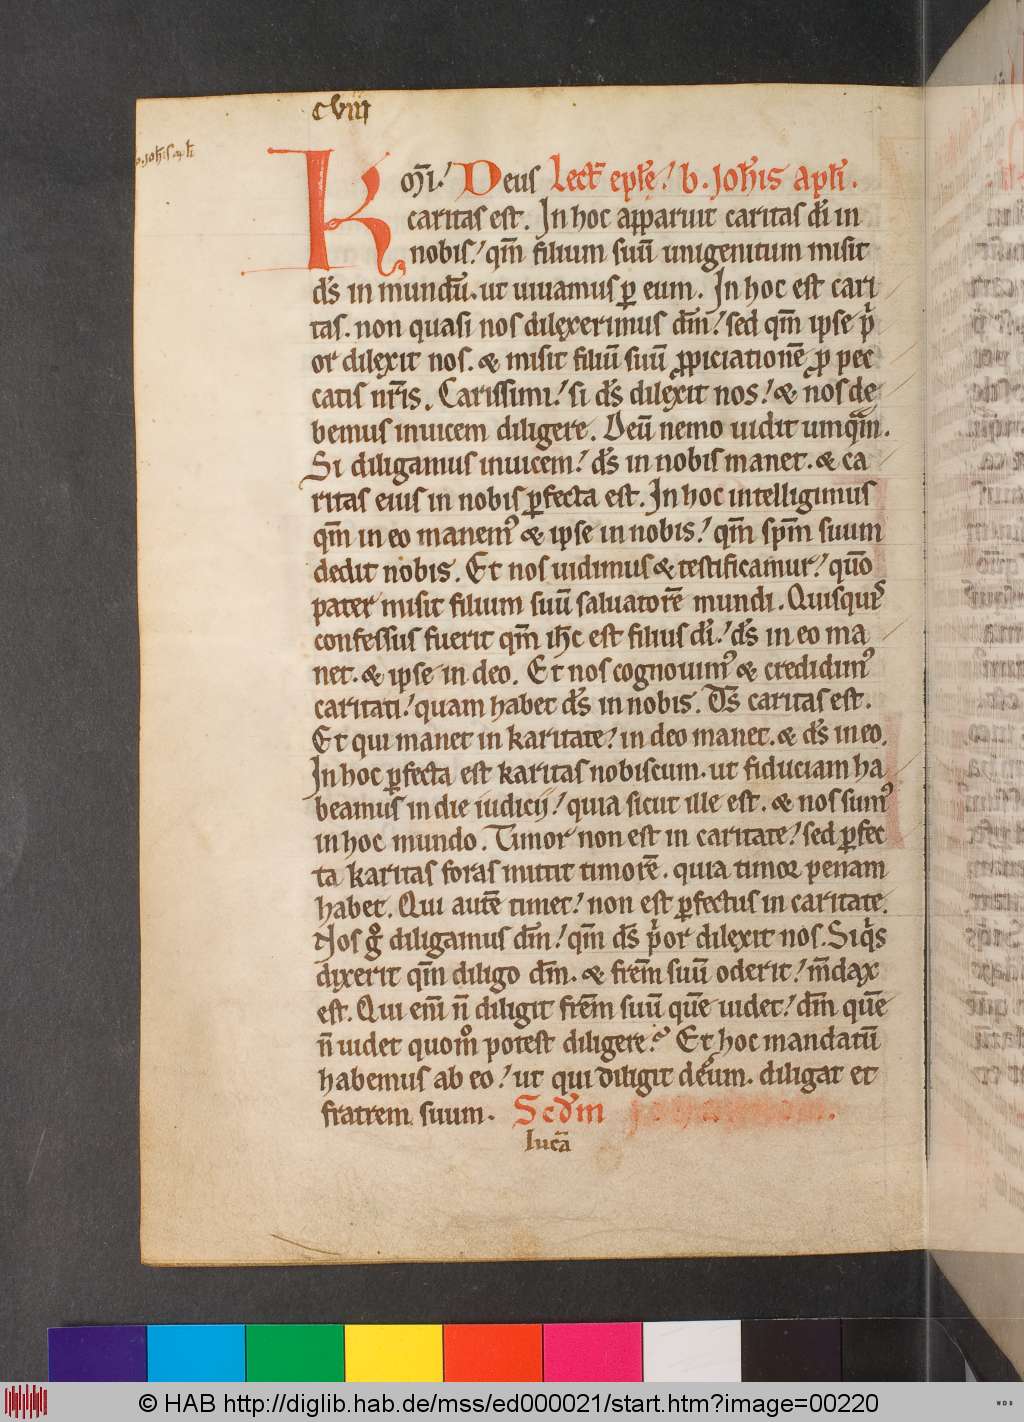 cviii
b. ioh̄is ap̄li
K om̄i. Deus Lect̄ ep̄le. b. Ioh̄is ap̄li.
caritas est. In hoc apparuit caritas dī in
nobis. qm̄ filium suū unigenitum misit
ds̄ in mundū. ut uiuamus ꝑ eum. In hoc est cari
tas. non quasi nos dilexerimus dm̄. sed qm̄ ipse p͛
or dilexit nos. & misit filiū suū ꝓpiciationē ꝓ pec
catis nr̄is. Carissimi. si ds̄ dilexit nos. & nos de
bemus inuicem diligere. Deū nemo uidit umqm̄.
Si diligamus inuicem. ds̄ in nobis manet. & ca
ritas eius in nobis ꝑfecta est. In hoc intelligimus
qm̄ in eo manem᷒ & ipse in nobis. qm̄ spm̄ suum
dedit nobis. Et nos uidimus & testificamur. quō
pater misit filium suū saluatorē mundi. Quisquis
confessus fuerit qm̄ ih̄c est filius dī. ds̄ in eo ma
net. & ipse in deo. Et nos cognouim᷒ & credidim᷒
caritati. quam habet ds̄ in nobis. Ds̄ caritas est.
Et qui manet in karitate. in deo manet. & ds̄ in eo.
In hoc ꝑfecta est karitas nobiscum. ut fiduciam ha
beamus in die iudicij. quia sicut ille est. & nos sum᷒
in hoc mundo. Timor non est in caritate. sed ꝑfec
ta karitas foras mittit timorē. quia timor penam
habet. Qui autē timet. non est ꝑfectus in caritate.
Nos gͦ diligamus dm̄. qm̄ ds̄ p͛or dilexit nos. Siqͥs
dixerit qm̄ diligo dm̄. & frem̄ suū oderit. m̄dax
est. Qui enī n̄ diligit frem̄ suū quē uidet. dm̄ quē
n̄ uidet quomͦ potest diligere. Et hoc mandatū
habemus ab eo. ut qui diligit deum. diligat et
fratrem suum. Scdm̄
lucā
© HAB http://diglib.hab.de/mss/ed000021/start.htm?image=00220